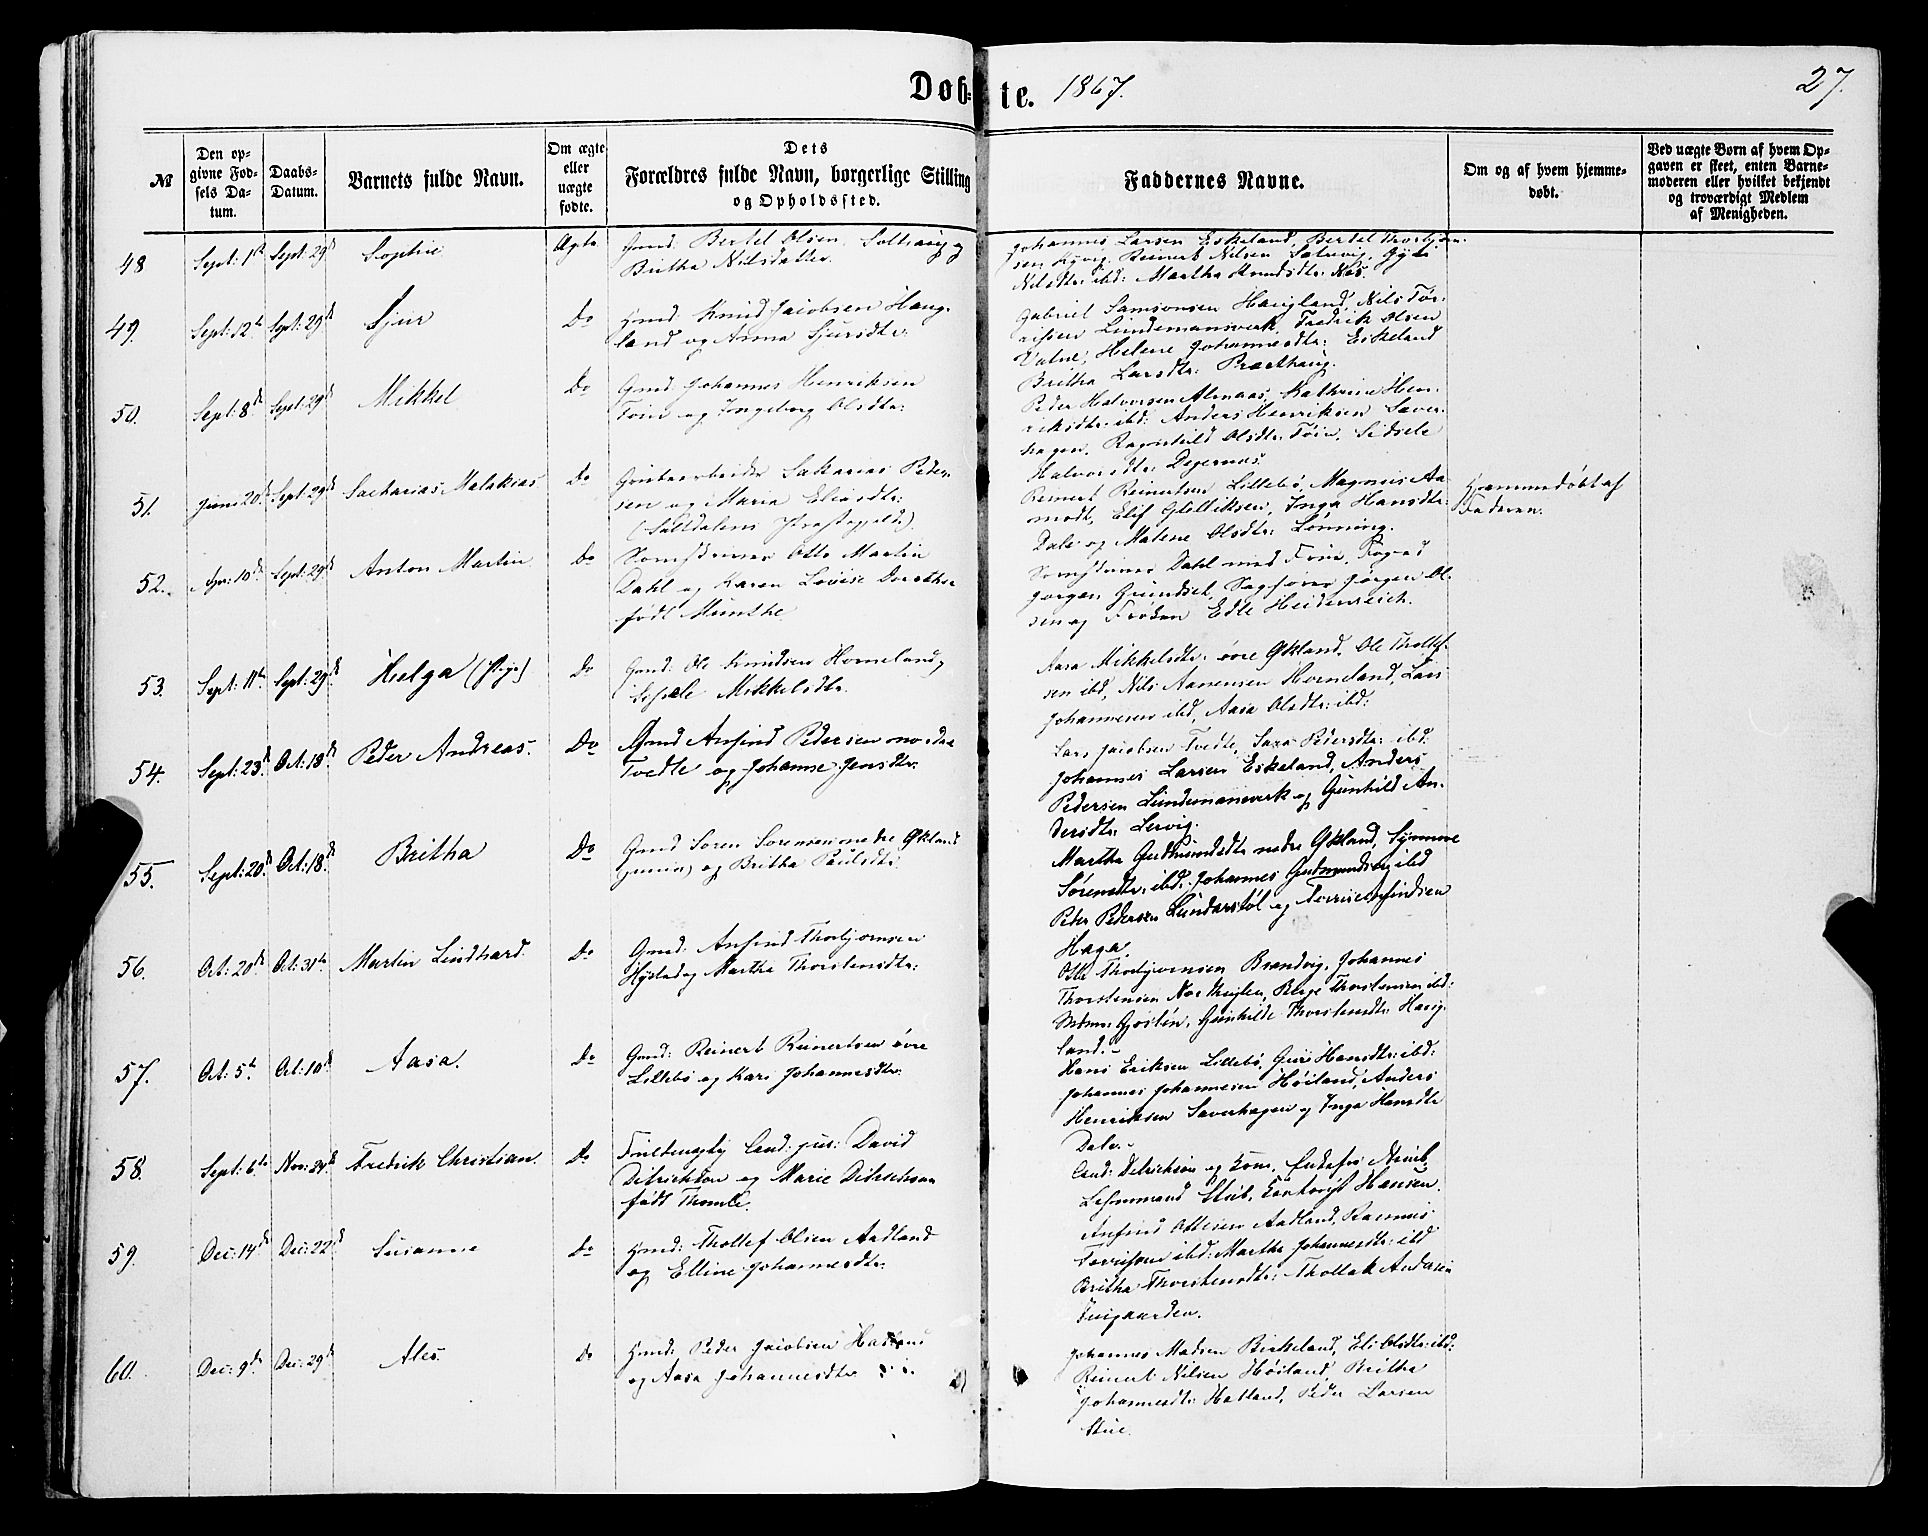 Døb-te. 1867.
27.
№
Den opgivne Fødsels Datum.
Daabs-Datum.
Barnets fulde Navn.
Om ægte eller uægte fødte.
Dets Forældres fulde Navn, borgerlige Stilling og Opholdssted.
Faddernes Navne.
Om og af hvem hjemmedøbt.
Ved uægte Børn af hvem Opgaven er skeet, enten Barnemoderen eller hvilket bekjendt og troværdigt Medlem af Menigheden.
48 Sept: 1st Sept: 29d Sophie Ægte Gmd: Bertel Olsen
Britha Nilsdatter
Johannes Larsen Eskeland, Bertel Thorbjørn-
sen Reinert Nilsen
Nilsdtr: ibd: Martha Knudsdtr: Næs.
49. Sept: 12te Sept: 29d Sjur Do Hmd: Knud Jacobsen Haug-
land og Anna Sjursdtr:
Gabriel Samsonsen Haugland, Nils Tør-
risen Lundemansverk, Fredrik Olsen
Valne, Helene Johannesdtr: Eskeland
Britha Larsdtr: Braathaug.
50. Sept: 8d Sept: 29d Mikkel Do Gmd: Johannes Henriksen
Tøien og Ingeborg Olsdtr:
Peder Halvorsen Almaas, Kathrine Hen-
riksdtr: ibd: Anders Henriksen Saver-
hagen, Ragnhild Olsdtr: Tøien, Sidsele
Halvorsdtr: Degernæs.
51. Juni 20d Sept: 29d Sacharias Malakias Do Grubearbeider Sakarias Peder-
sen og Maria Eliasdtr:
(Saltdalens Præstegjeld).
Reinert Reinertsen Lillebø, Magnus Aa-
modt, Elif Inga Hansdtr:
Dale og Malene Olsdtr: Lønning.
Hjemmedøbt af
Faderen.
52. Apr: 10d Sept: 29d Anton Martin Do Sorenskriver Otto Martin
Dahl og Karen Lovise Dorothea
født Munthe
Sorenskriver Dahl med Frue, Foged
Jørgen Grundset, Sagfører Jørgen Ol-
sen og Frøken Edle Heidenreich.
53. Sept: 11te Sept: 29d Helga (Pige) Do Gmd: Ole Knudsen Horneland og
Mikkelsdtr.
Aasa Mikkelsdtr: øvre Økland, Ole Thollef-
sen ibd, Nils Aanensen Horneland, Lars
Johannesen ibd, Aasa Olsdtr: ibd:
54. Sept: 23d Oct: 18d Peder Andreas. Do Gmd Anfind Pedersen nordre
Tvedte og Johanne Jensdtr.
Lars Jacobsen Tvedte, Sara Pedersdtr: ibd:
Johannes Larsen Eskeland, Anders
Pedersen Lundemanverk og Gunhild An-
dersdtr: Lervig.
55. Sept: 20d Oct: 18d Britha Do Gmd Søren Sørensen nedre Økland
(junior) og Britha Paulsdtr:
Martha Gudmundsdtr nedre Økland, Synnove
Sørensdtr: ibd: Johannes Gudmundsen ibd
Peder Pedersen Lundarstøl og Anfindsen
Haga.
56. Oct: 20d Oct: 31te Martin Lindhard. Do Gmd: Anfind Thorbjørnsen
og Martha Thorstensdtr:
Otte Thorbjørnsen Brandvig, Johannes
Thorstensen Børge Thorstensen ibd:
Gjøsten, Gunhilde Thorstensdtr: Haug-
land.
57. Oct: 5te Oct: 10d Aasa. Do Gmd: Reinert Reinertsen øvre
Lillebø og Kari Johannesdtr.
Hans Eriksen Lillebø, Guri Hansdtr: ibd:
Johannes Johannesen Høiland, Anders
Henriksen Saverhagen og Inga Hansdtr
Dale.
58. Sept: 6te Nov: 24d Fredrik Christian. Do Cand: jur: David
Ditrichson og Marie Ditrichson
født Thomle.
Cand: Ditrichson og Kone,
Lehnsmand Stub, Kontorist Hansen.
59. Dec: 14d Dec: 22d Susanne Do Hmd: Thollef Olsen Aadland
og Elline Johannesdtr:
Anfind Ottesen Aadland, Rasmus
ibd: Martha Johannesdtr: ibd
Britha Thorstensdtr: Thollak Andersen
60. Dec: 9de Dec: 29d Ales. Do Hmd: Peder Jacobsen Hatland
og Aasa Johannesdtr
Johannes Madsen Birkeland, Eli Olsdtr: ibd:
Reinert Nilsen Høiland, Britha
Johannesdtr: Hatland, Peder Larsen
Stue.